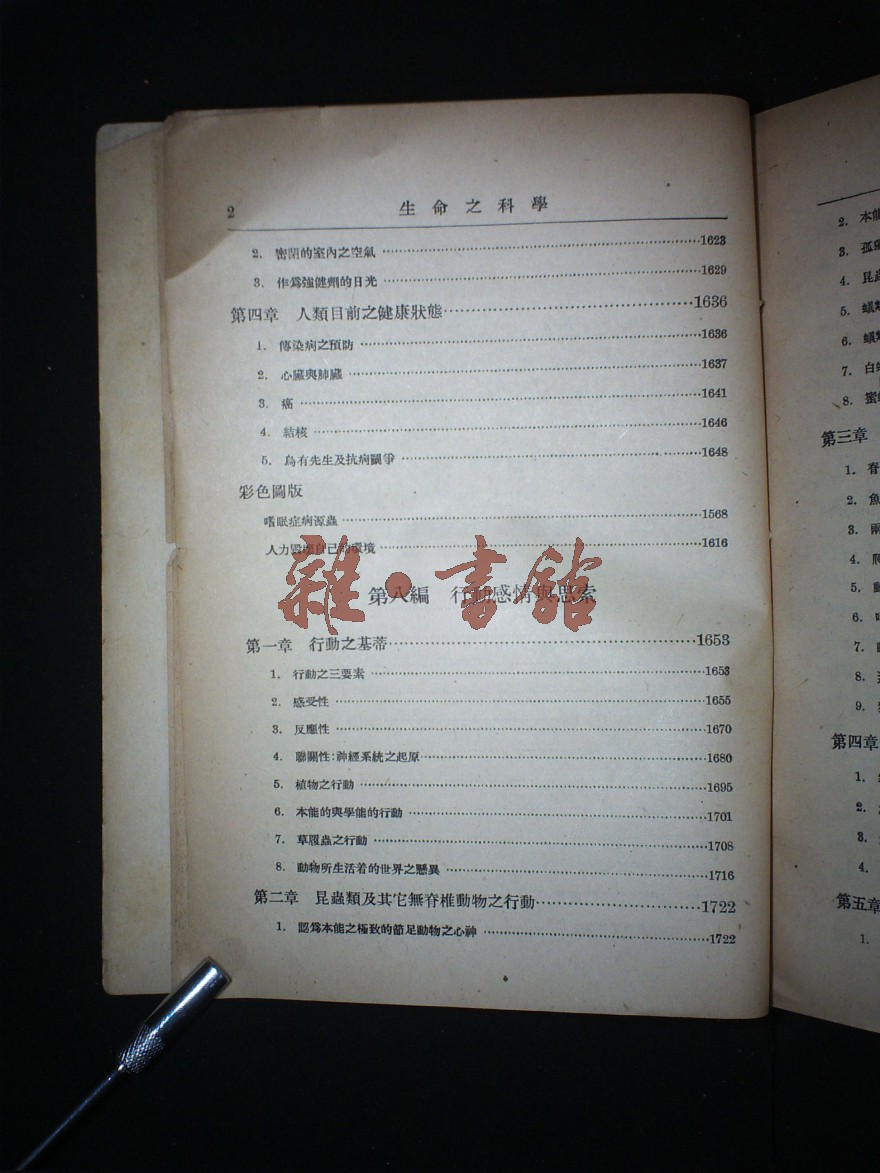 2 生命之科學
2. 密閉的室內之空氣 1623
3. 作爲強健劑的日光 1629
第四章 人類目前之健康狀態 1636
1. 傳染病之預防 1636
2. 心臟與肺臟 1637
3. 癌 1641
4. 結核 1646
5. 烏有先生及抗病鬭爭 1648
彩色圖版
嗜眠症病源蟲 1568
人力毀壞自己的環境 1616
雜·書館
第八編 行動感情與思索
第一章 行動之基蒂 1653
1. 行動之三要素 1653
2. 感受性 1655
3. 反應性 1670
4. 聯關性:神經系統之起原 1680
5. 植物之行動 1695
6. 本能的與學能的行動 1701
7. 草履蟲之行動 1708
8. 動物所生活着的世界之懸異 1716
第二章 昆蟲類及其它無脊椎動物之行動 1722
1. 認爲本能之極致的節足動物之心神 1722
2. 本能
3.
4. 昆蟲
5.
6.
7.
8.
第三章
1. 脊
2. 魚
3. 兩
4. 爬
5. 動
6.
7.
8.
9.
第四章
1.
2.
3.
4.
第五章
1.